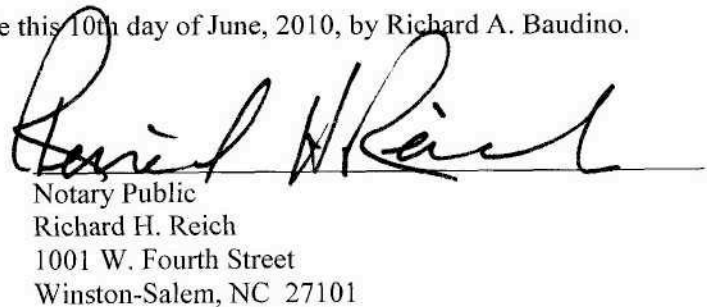 e this 10th day of June, 2010, by Richard A. Baudino.
Notary Public
Richard H. Reich
1001 W. Fourth Street
Winston-Salem, NC 27101